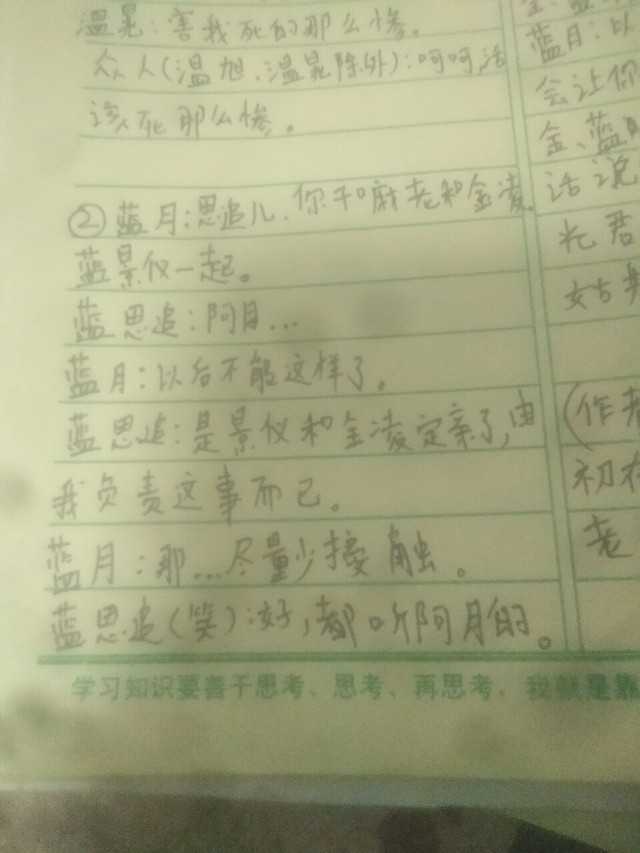 温晁：害我死的那么惨。
众人（温旭、温晁除外）：呵呵，活
该死那么惨。
②蓝月：思追儿，你干嘛老和金凌
蓝景仪一起。
蓝思追：阿月...
蓝月：以后不能这样了。
蓝思追：是景仪和金凌定亲了，由
我负责这事而已。
蓝月：那...尽量少接触。
蓝思追（笑）：好，都听阿月的。
学习知识要善于思考、思考、再思考，我就是靠
蓝月：以
会让你
金、蓝
话说
姑
（作者
初
老